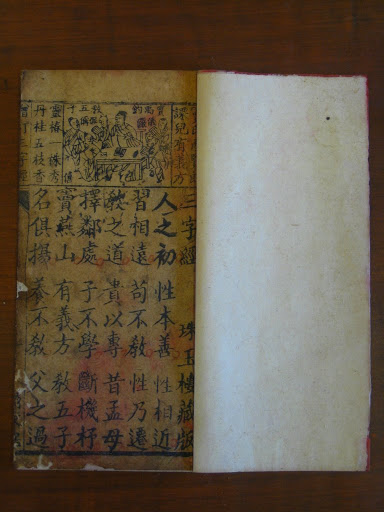 課兒有義方
教五子
靈椿一株老
丹桂五枝香
三字經 珠玉樓藏版
人之初 性本善 性相近
習相遠 苟不教 性乃遷
教之道 貴以專 昔孟母
擇鄰處 子不學 斷機杼
竇燕山 有義方 教五子
名俱揚 養不教 父之過